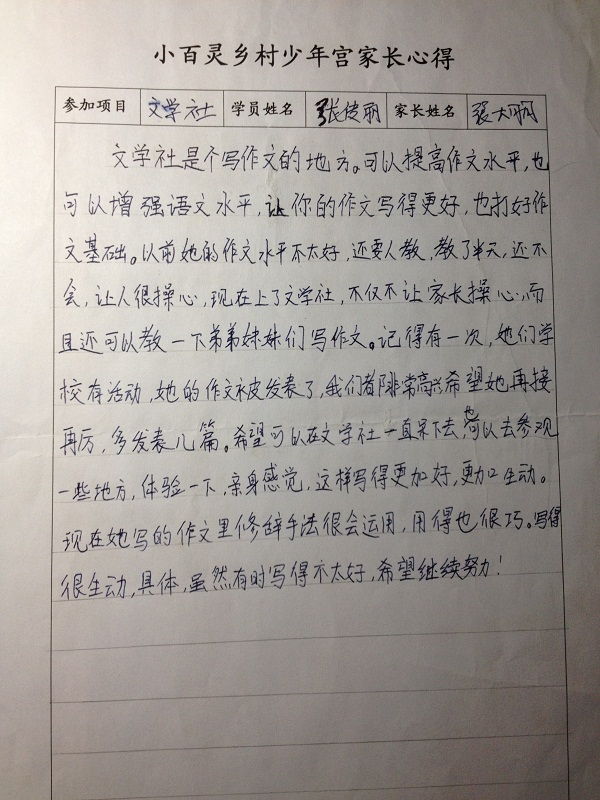 小百灵乡村少年宫家长心得
参加项目 文学社 学员姓名 张俊丽 家长姓名 张大刚
文学社是个写作文的地方。可以提高作文水平,也
可以增强语文水平,让你的作文写得更好,也打好作
文基础。以前她的作文水平不太好,还要人教,教了半天,还不
会,让人很操心,现在上了文学社,不仅不让家长操心,而
且还可以教一下弟弟妹妹们写作文。记得有一次,她们学
校有活动,她的作文被发表了,我们都非常高兴希望她再接
再厉,多发表几篇。希望可以在文学社一直呆下去,可以去参观
一些地方,体验一下,亲身感觉,这样写得更加好,更加生动。
现在她写的作文里修辞手法很会运用,用得也很巧。写得
很生动,具体,虽然有时写得不太好,希望继续努力!